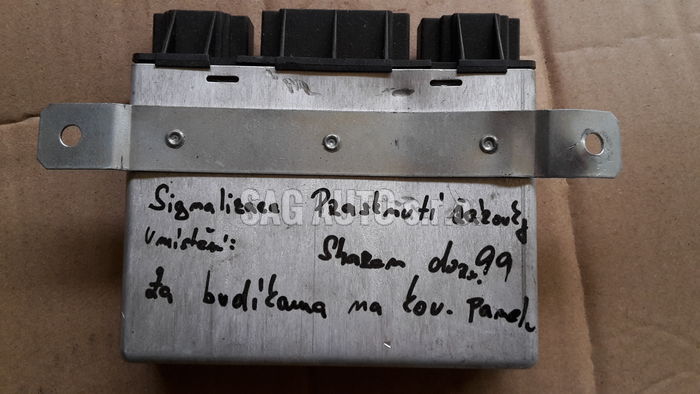 Signalizace Prasknutí žárovky
SAG AUTO
Umístění: Sharan do r.v. 99
Za budíkama na kov. panelu